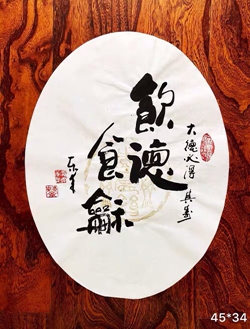 大德必得其寿
飲德
食龢
45*34